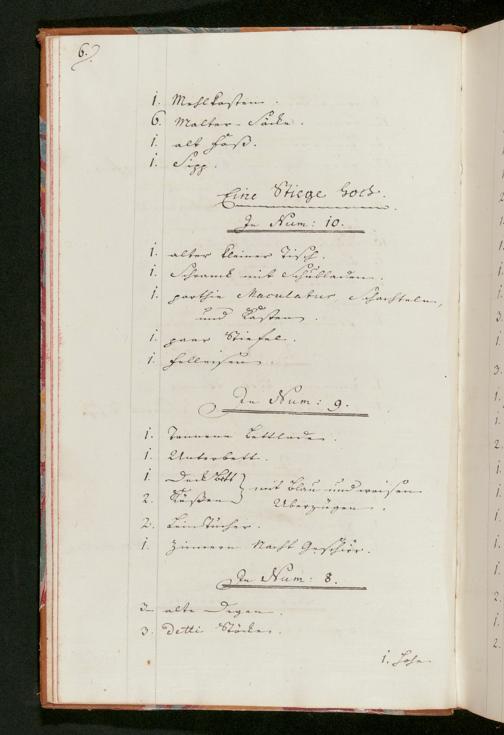 6.
1. Mehlkasten.
6. Malter-Säcke.
1. alt Faß.
1. Sipp.
Eine Stiege hoch.
In Num: 10.
1. alter kleiner Tisch.
1. Schrank mit Schubladen.
1. parthie Maculatur, Schachteln,
und Kasten.
1. paar Stiefel.
1. Felleisen.
In Num: 9.
1. Tannene Bettladen.
1. Unterbett.
1. Deck Bett
2. Küßen
mit Blau und weisen
Uberzügen.
2. Leintücher.
1. Zinnern Nacht Geschirr.
In Num: 8.
2. alte Degen.
3. detti Stöcke.
1.